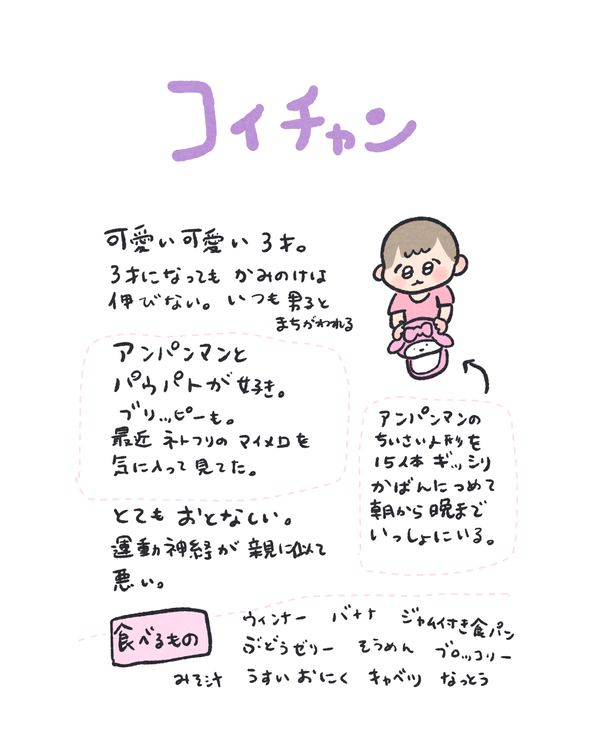 コイチャン
可愛い可愛い3才。
3才になっても かみのけは
伸びない。いつも男子と
まちがわれる
アンパンマンと
パウパトが好き。
ブリッピーも。
最近 ネトフリの マイメロを
気に入って見てた。
とても おとなしい。
運動神経が 親に似て
悪い。
アンパンマンの
ちいさい人形を
15体 ギッシリ
かばんに つめて
朝から晩まで
いっしょにいる。
食べるもの
ウィンナー バナナ ジャム付き食パン
ぶどうゼリー そうめん ブロッコリー
みそ汁 うすいおにく キャベツ なっとう